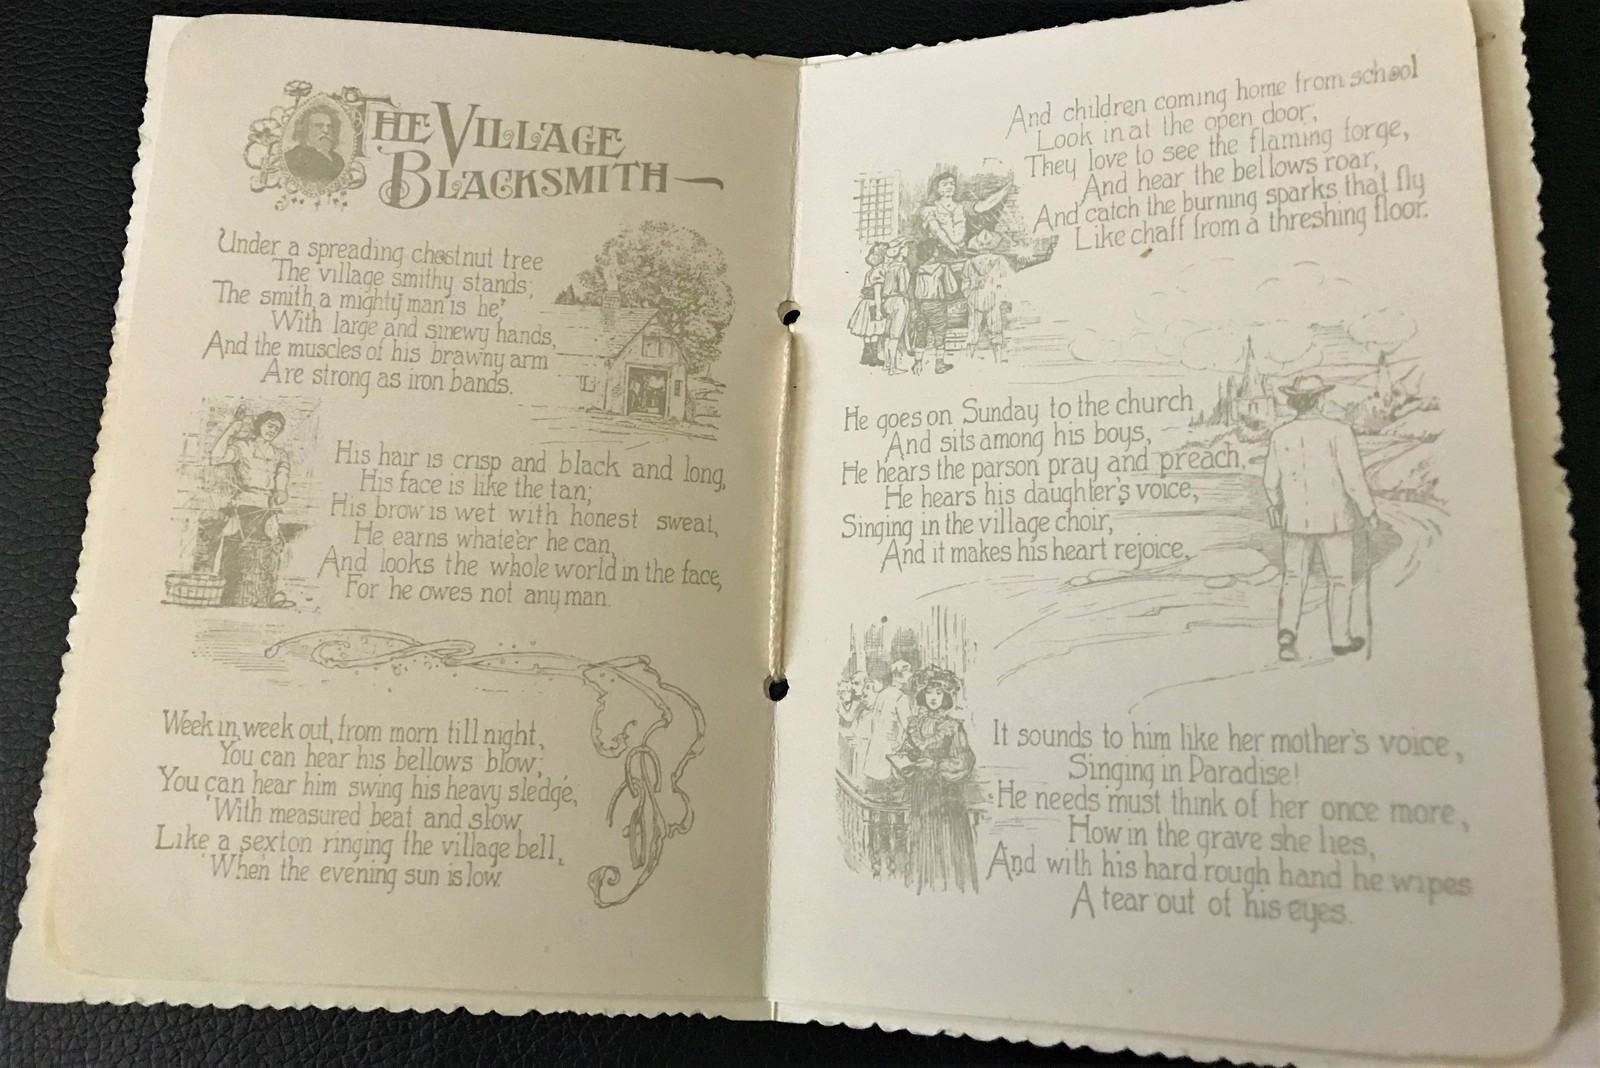 THE VILLAGE
BLACKSMITH
Under a spreading chestnut tree
The village smithy stands;
The smith, a mighty man is he,
With large and sinewy hands,
And the muscles of his brawny arm
Are strong as iron bands.
His hair is crisp and black and long,
His face is like the tan;
His brow is wet with honest sweat,
He earns whate'er he can,
And looks the whole world in the face,
For he owes not any man.
Week in, week out, from morn till night,
You can hear his bellows blow;
You can hear him swing his heavy sledge,
With measured beat and slow,
Like a sexton ringing the village bell,
When the evening sun is low.
And children coming home from school
Look in at the open door;
They love to see the flaming forge,
And hear the bellows roar,
And catch the burning sparks that fly
Like chaff from a threshing floor.
He goes on Sunday to the church
And sits among his boys,
He hears the parson pray and preach,
He hears his daughter's voice,
Singing in the village choir,
And it makes his heart rejoice,
It sounds to him like her mother's voice,
Singing in Paradise!
He needs must think of her once more,
How in the grave she lies,
And with his hard rough hand he wipes
A tear out of his eyes.